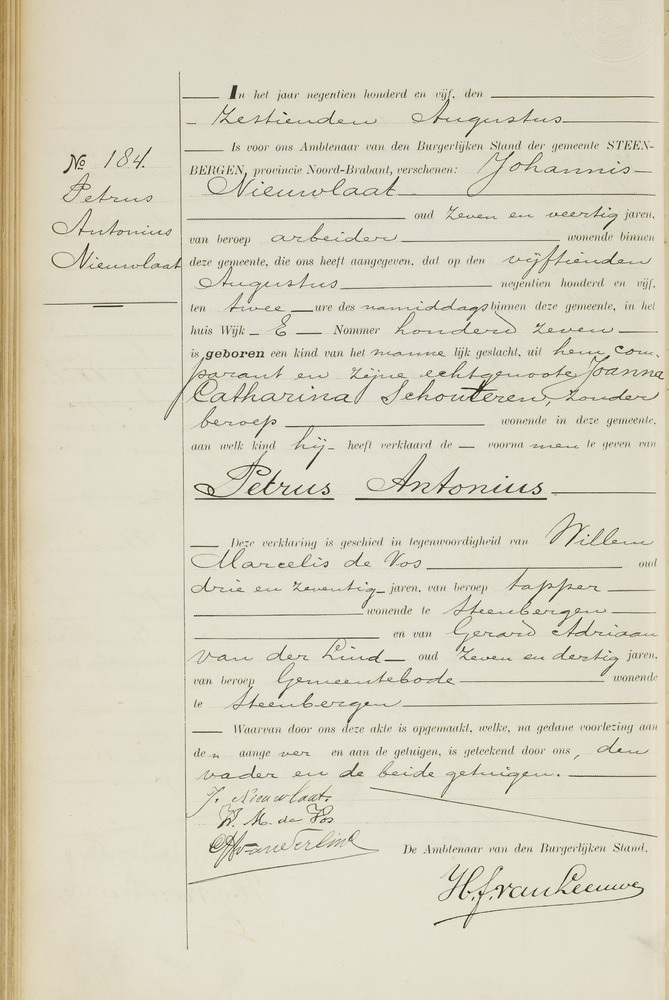 No 184.
Petrus
Antonius
Nieuwlaat
In het jaar negentien honderd en vijf, den
zestienden Augustus
Is voor ons Ambtenaar van den Burgerlijken Stand der gemeente STEEN-
BERGEN, provincie Noord-Brabant, verschenen: Johannis
Nieuwlaat
oud zeven en veertig jaren,
van beroep arbeider wonende binnen
deze gemeente, die ons heeft aangegeven, dat op den vijftienden
Augustus negentien honderd en vijf,
ten twee ure des namiddags binnen deze gemeente, in het
huis Wijk E Nommer honderd zeven
is geboren een kind van het manne lijk geslacht, uit hem com-
parant en zijne echtgenoote Joanna
Catharina Schouteren, zonder
beroep wonende in deze gemeente,
aan welk kind hij heeft verklaard de voorna men te geven van
Petrus Antonius
Deze verklaring is geschied in tegenwoordigheid van Willem
Marcelis de Vos oud
drie en zeventig jaren, van beroep tapper
wonende te Steenbergen
en van Gerard Adriaan
van der Lind oud zeven en dertig jaren,
van beroep Gemeentebode wonende
te Steenbergen
Waarvan door ons deze akte is opgemaakt, welke, na gedane voorlezing aan
de n aange ver en aan de getuigen, is geteekend door ons, den
vader en de beide getuigen.
J. Nieuwlaat.
W. M. de Vos
vanderLind
De Ambtenaar van den Burgerlijken Stand,
H.f. van Leeuwe